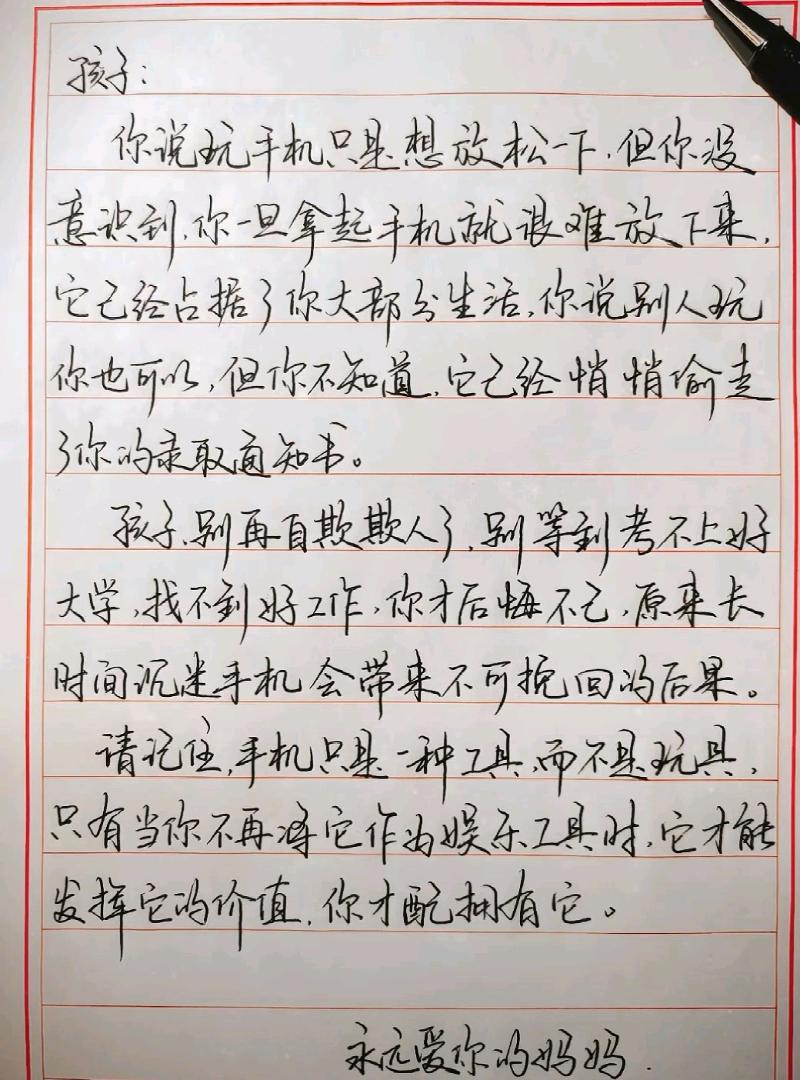 孩子:
你说玩手机只是想放松一下,但你没
意识到,你一旦拿起手机就很难放下来,
它已经占据了你大部分生活,你说别人玩
你也可以,但你不知道,它已经悄悄偷走
了你的录取通知书。
孩子,别再自欺欺人了,别等到考不上好
大学,找不到好工作,你才后悔不已,原来长
时间沉迷手机会带来不可挽回的后果。
请记住,手机只是一种工具,而不是玩具,
只有当你不再将它作为娱乐工具时,它才能
发挥它的价值,你才配拥有它。
永远爱你的妈妈.